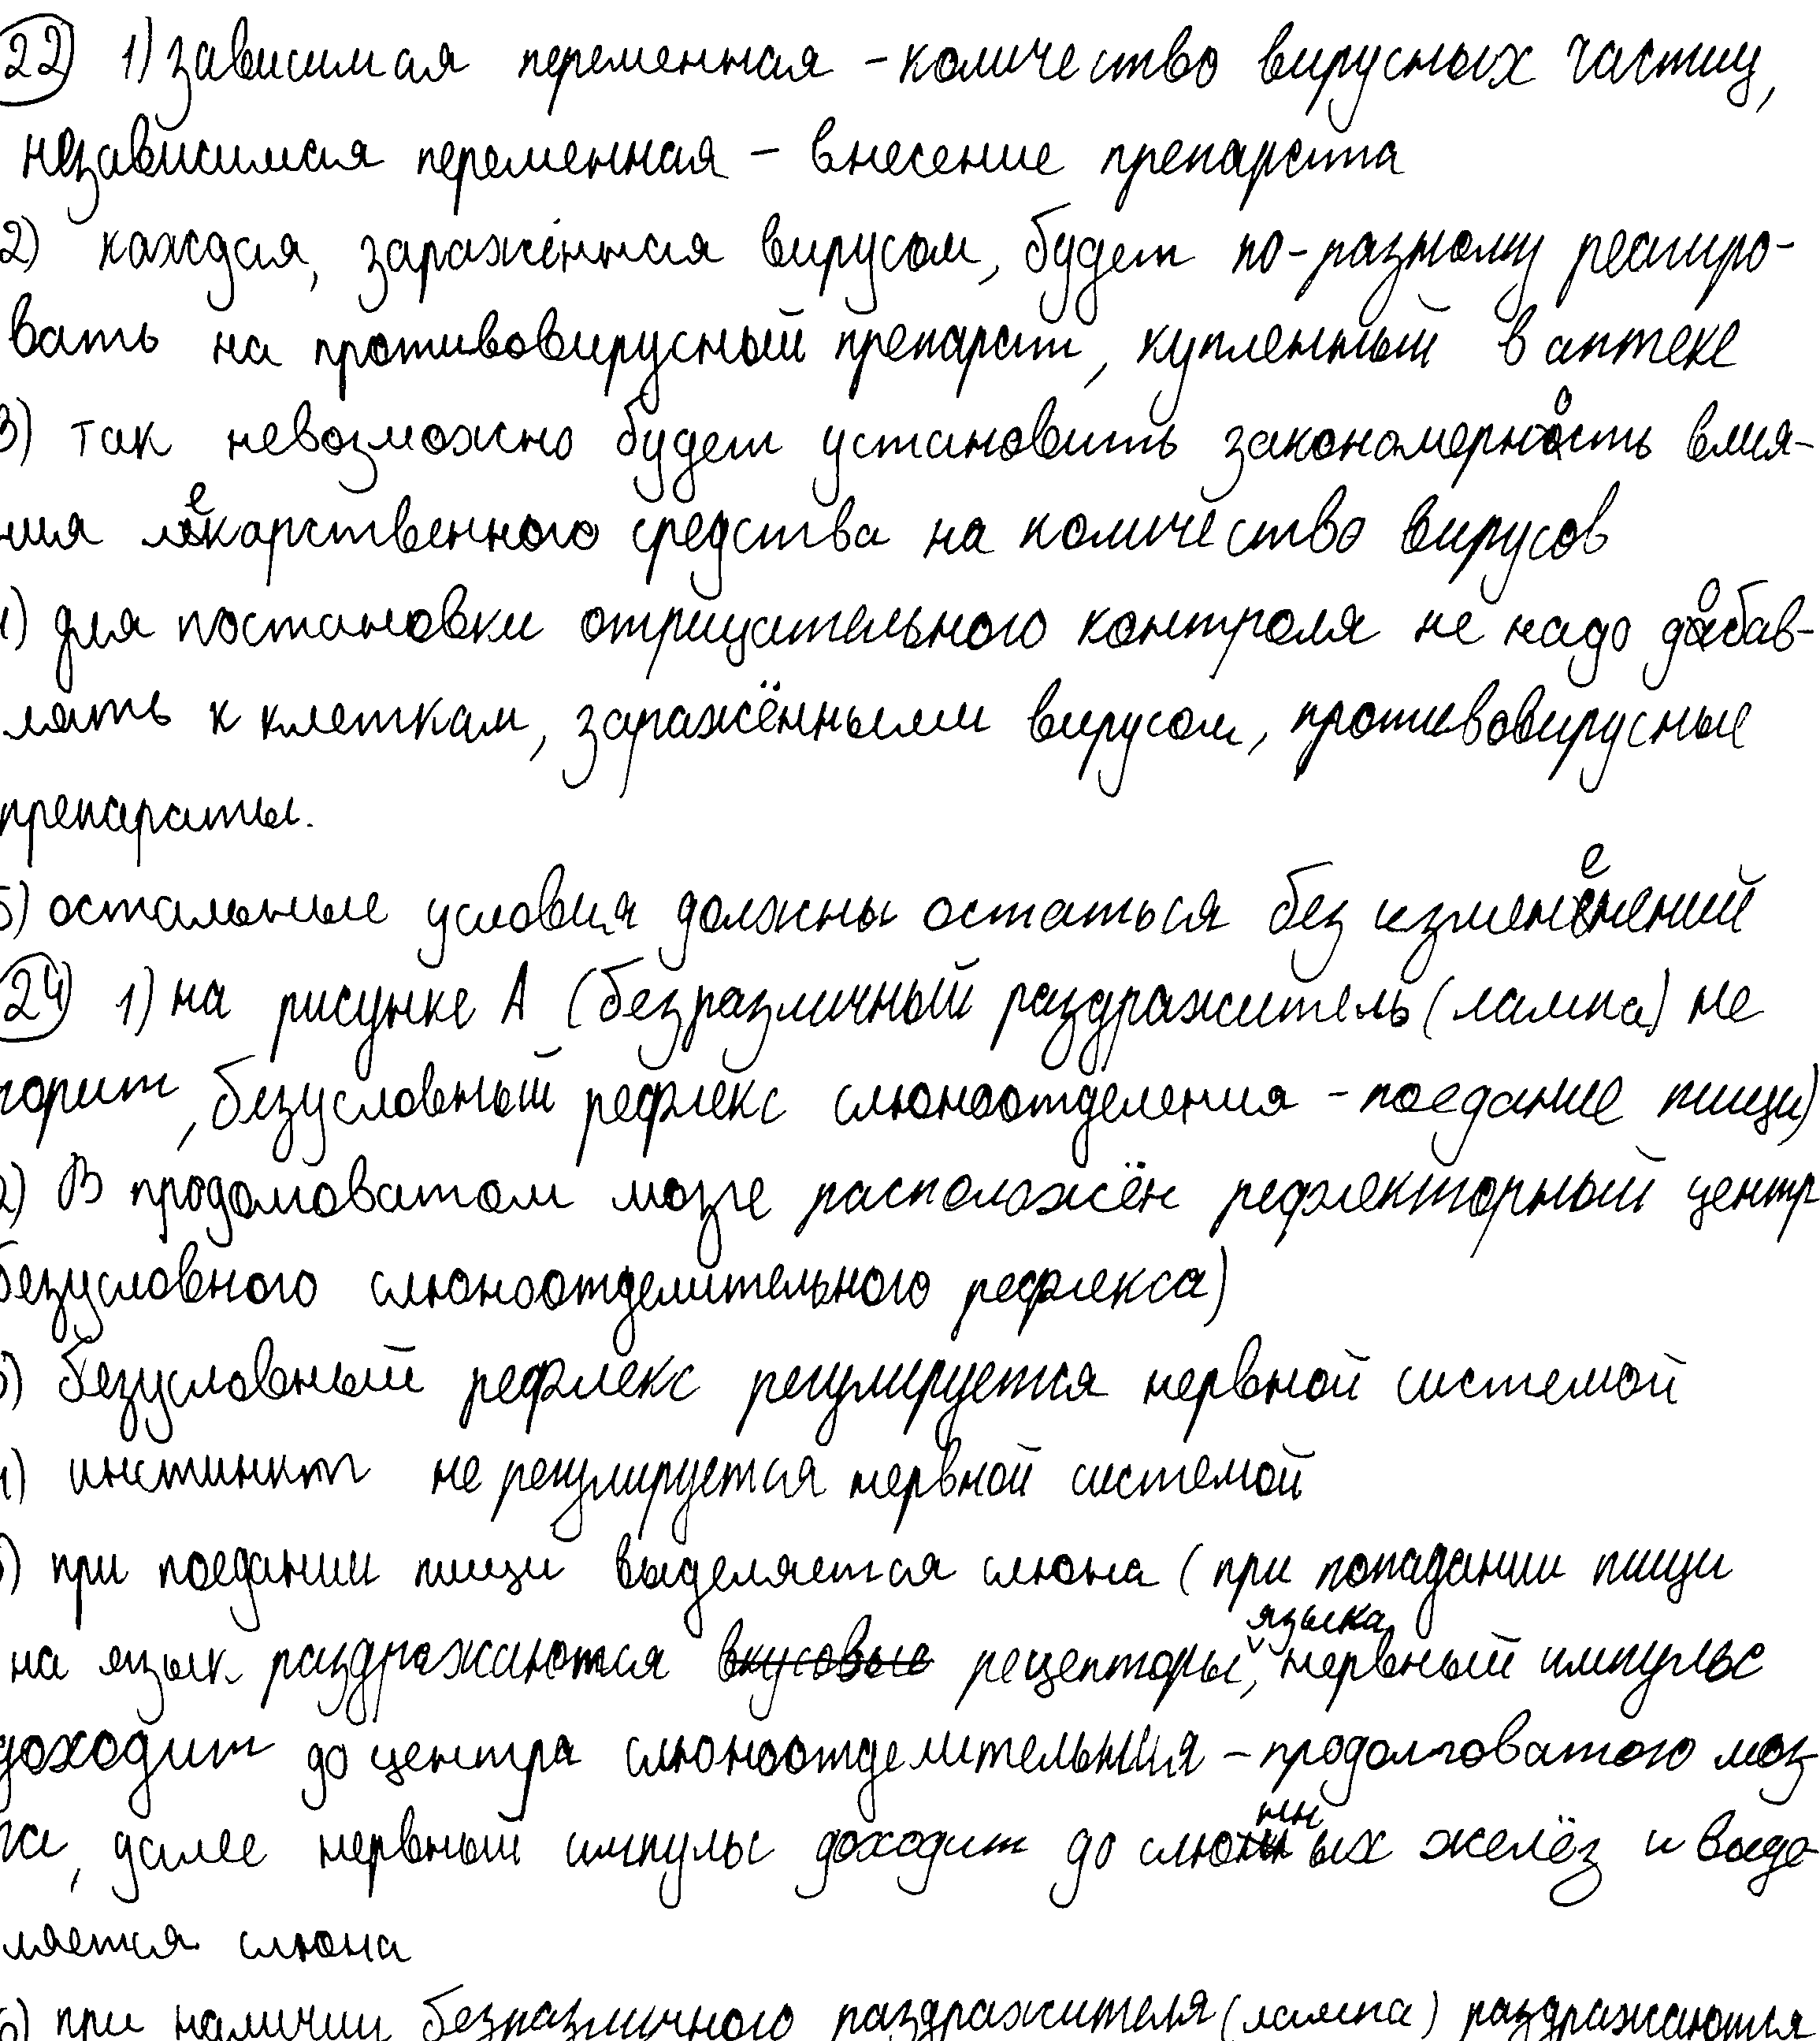 22) 1) зависимая переменная - количество вирусных частиц,
независимая переменная - внесение препарата
2) каждая, заражённая вирусом, будет по-разному реагиро-
вать на противовирусный препарат, купленный в аптеке
3) так невозможно будет установить закономерность влия-
ния лекарственного средства на количество вирусов
4) для постановки отрицательного контроля не надо добав-
лять к клеткам, заражёнными вирусом, противовирусные
препараты.
5) остальные условия должны остаться без изменений
24) 1) на рисунке А (безразличный раздражитель (лампа) не
горит, безусловный рефлекс слюноотделения - поедание пищи)
2) В продолговатом мозге расположён рефлекторный центр
безусловного слюноотделительного рефлекса)
3) безусловный рефлекс регулируется нервной системой
4) инстинкт не регулируется нервной системой
5) при поедании пищи выделяется слюна (при попадании пищи
на язык раздражаются вкусовые рецепторы языка, нервный импульс
доходит до центра слюноотделительния - продолговатого моз-
га, далее нервный импульс доходит до слюнных желёз и выде-
ляется слюна
6) при наличии безразличного раздражителя (лампа) раздражаются